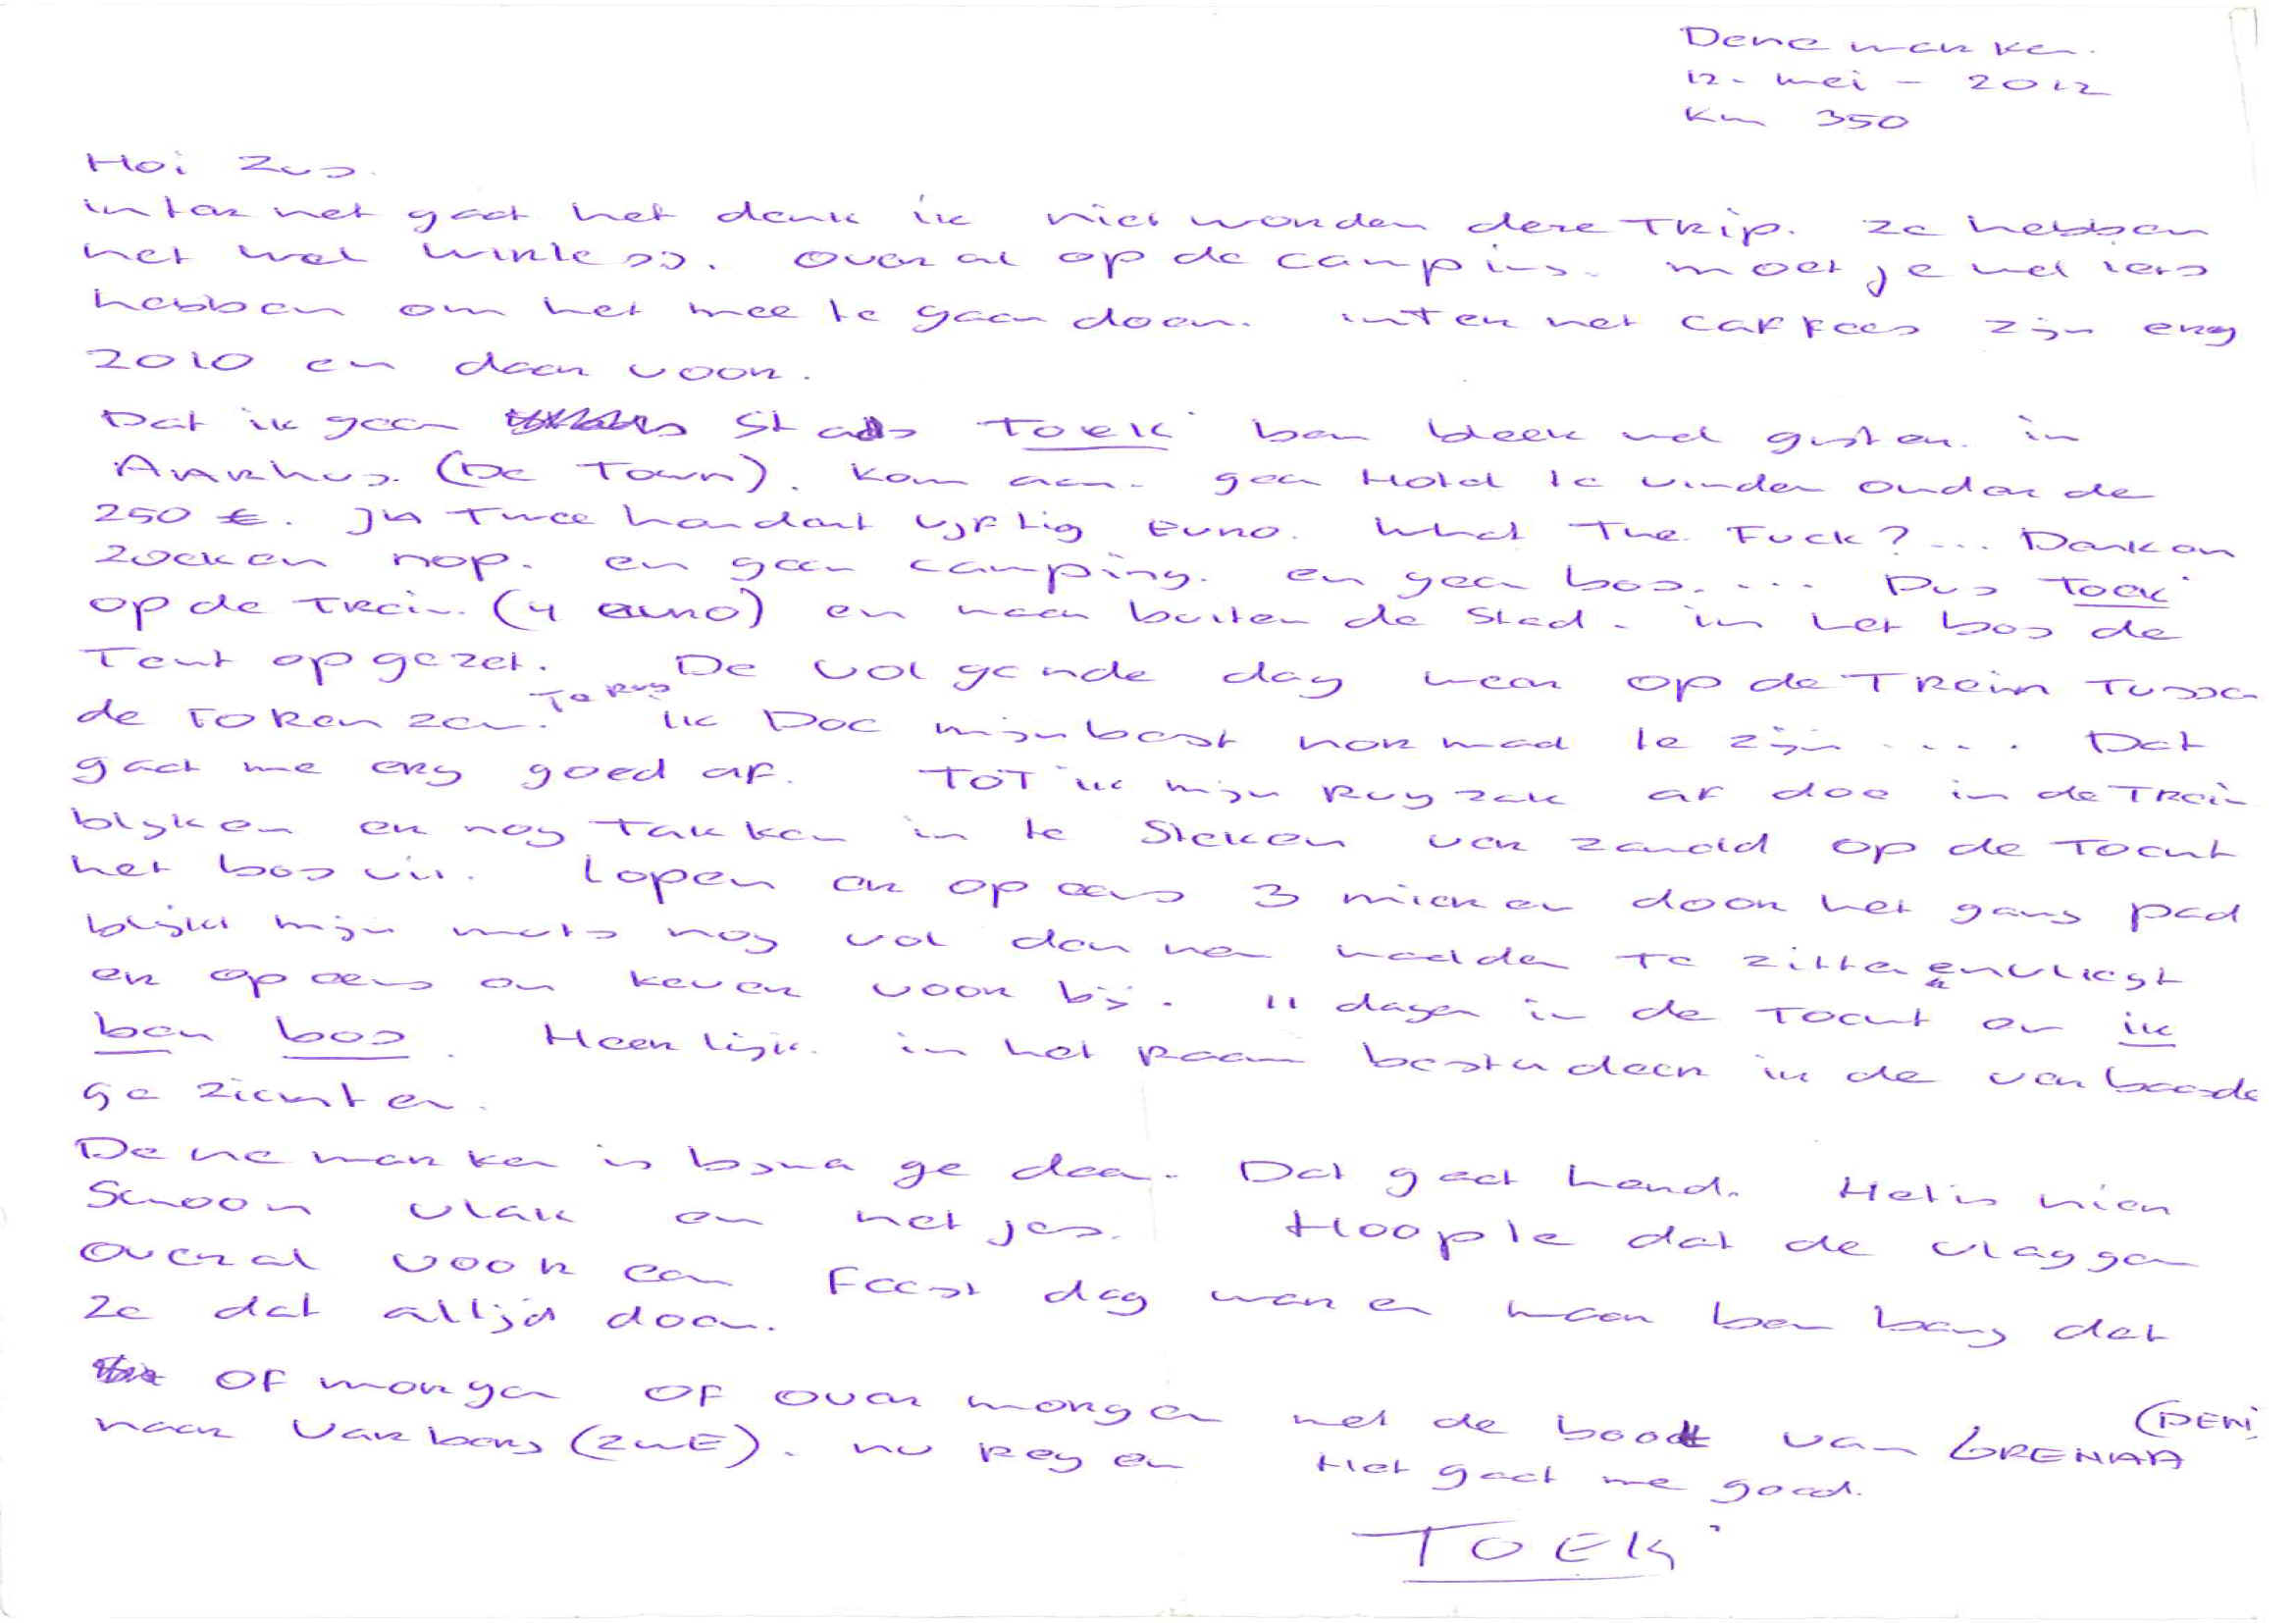 Denemarken.
12 - mei - 2012
Km 350
Hoi Zus.
internet gaat het denk ik niet worden deze Trip. ze hebben
het wel wirless. overal op de campins. moet je wel iets
hebben om het mee te gaan doen. internet caffees zijn erg
2010 en daar voor.
Dat ik geen stads Toek ban bleek wel gisteren. in
AARhus. (De Town). Kom aan. geen Hotel te vinden onder de
250 €. JA Twee hondert vijftig Euro. What The Fuck?... Denken
zoeken nop. en geen camping. en geen bos.... Dus Toek
op de Trein. (4 euro) en naar buiten de stad. in het bos de
Tent opgezet. De volgende dag weer op de Trein Tussen
de Forenzen. Terug Ik Doe mijn best normaal te zijn .... Dat
gaat me erg goed af. ToT ik mijn Rugzak af doe in de Trein
blijken er nog Takken in te steken van zanoid op de Tocht
het bos uit. Lopen er op eens 3 mieren door het gang pad
blijkt mijn muts nog vol dennen naalden Te zitten en vliegt
er op eens en kever voor bij. 11 dagen in de Tocht en ik
ben bos. Heerlijk. in het Raam bestudeer ik de verbaasde
gezichten.
Denemarken is bijna gedaan. Dat gaat hard. Het is hier
schoon vlak en netjes. Hoople dat de vlaggen
overal voor een Feest dag waren maar ben bang dat
ze dat altijd doen.
of morgen of over morgen met de boot van GRENAA (DEN)
naar Varberg (ZWE). nu Regen Het gaat me goed.
TOEK